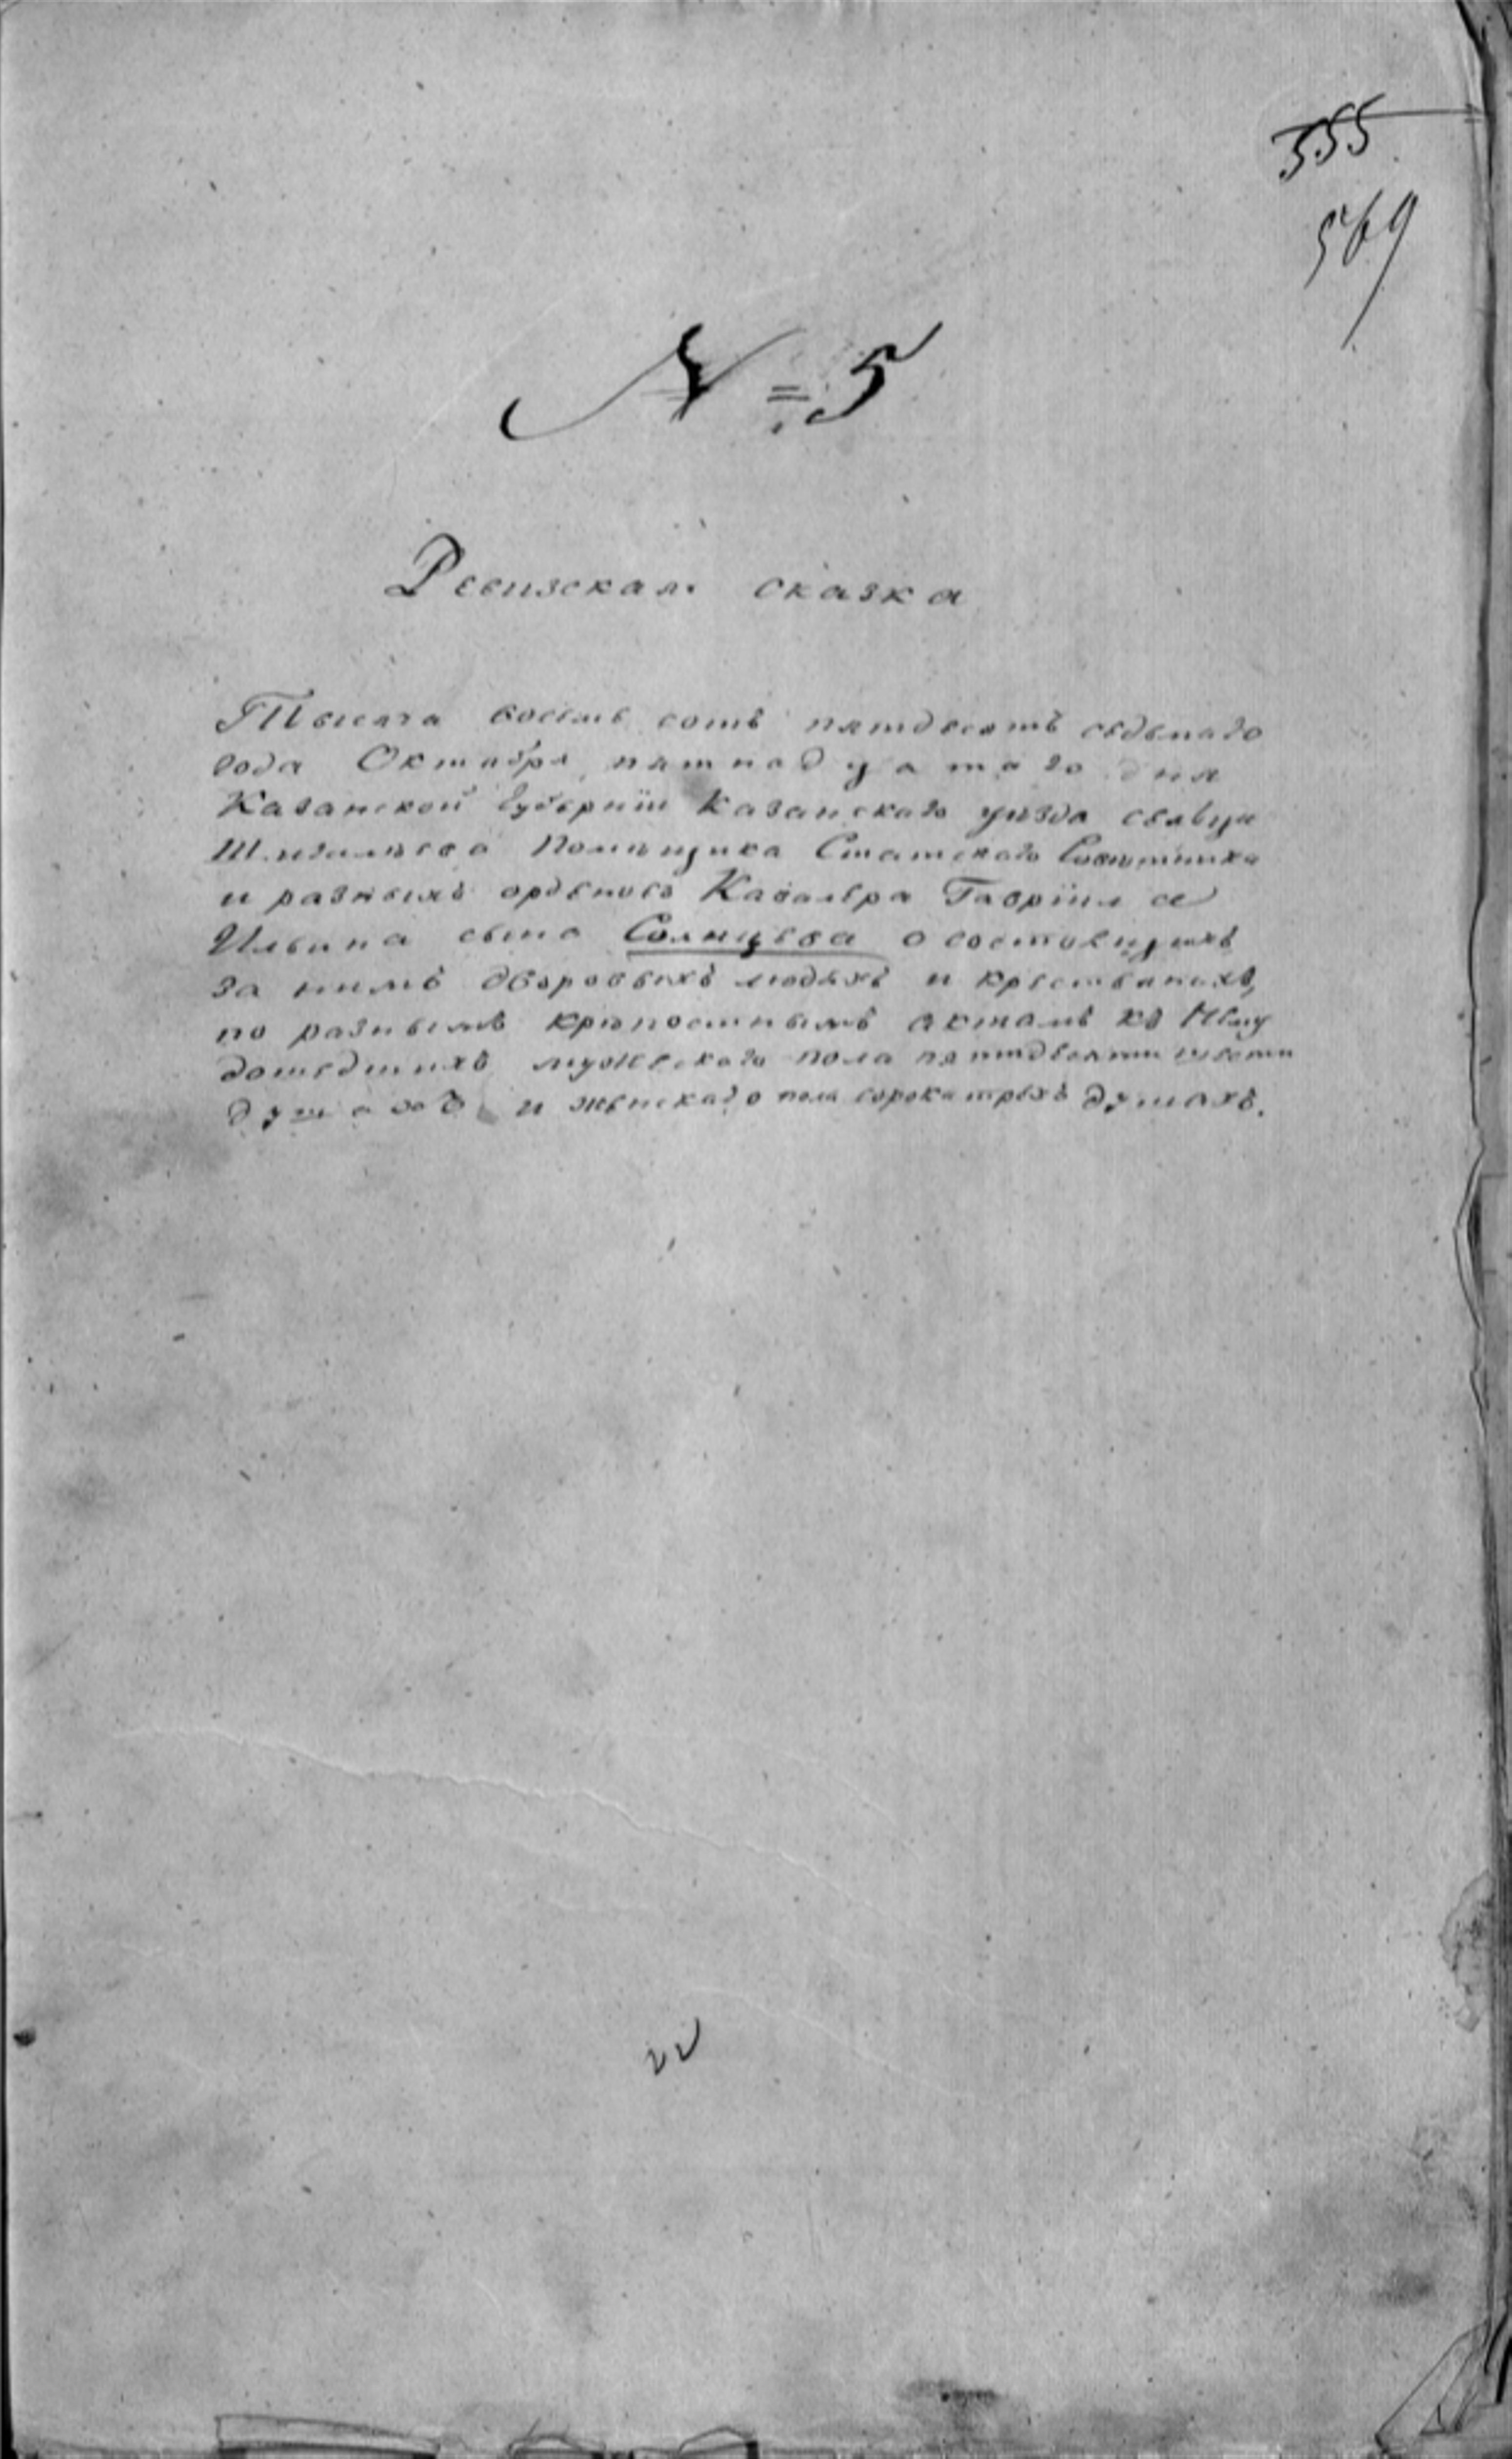 555
569
№ 5
Ревизская сказка
Тысяча восемь сотъ пятдесятъ седьмаго
года Октября пятнадцатаго дня
Казанской Губерніи Казанскаго уѣзда сельца
Шигалѣева Помѣщика Статскаго Совѣтника
и разныхъ орденовъ Кавалера Гавріила
Ильина сына Солнцева о состоящихъ
за нимъ дворовыхъ людяхъ и крестьянахъ,
по разнымъ крѣпостнымъ актамъ къ Нему
дошедшихъ мужескаго пола пятидесяти шести
душахъ и женскаго пола сорока трехъ душахъ.